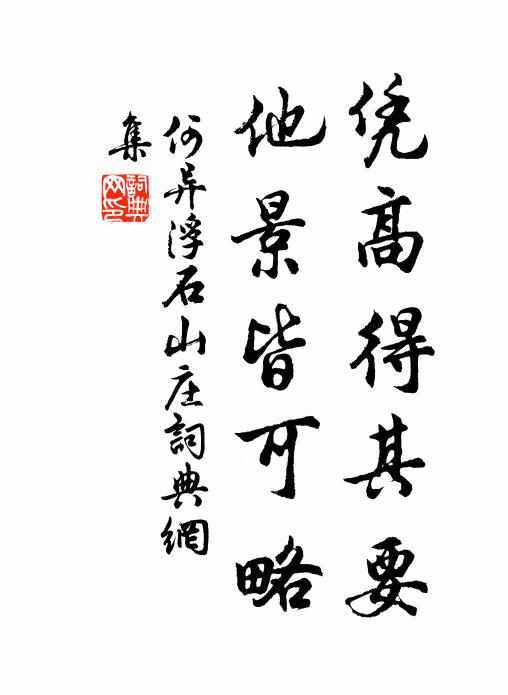 凭高得其要
他景皆可略
何异浮石山庄詞典網
集
詞典
网印